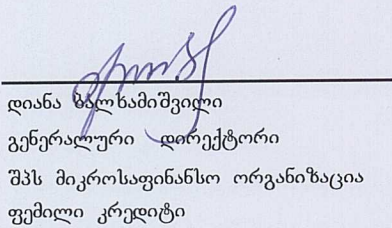 დიანა ბალხამიშვილი
გენერალური დირექტორი
შპს მიკროსაფინანსო ორგანიზაცია
ფემილი კრედიტი